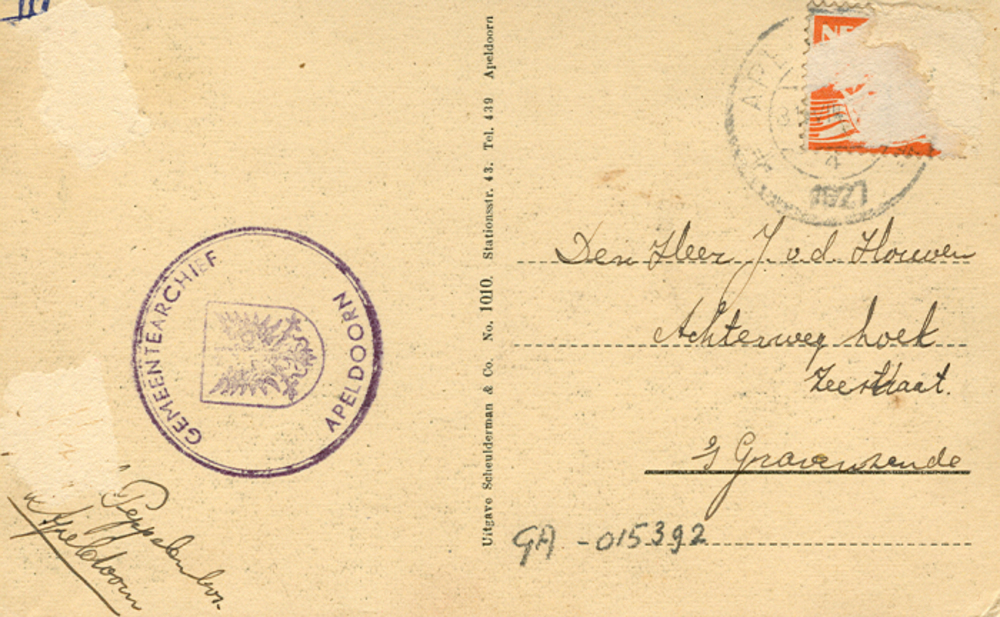 GEMEENTEARCHIEF
APELDOORN
Peppelenbos.
Apeldoorn
Uitgave Scheulderman & Co. No. 1010. Stationsstr. 43. Tel. 439 Apeldoorn
NE
APEL
4
1927
Den Heer J. v. d. Houwen
Achterweg hoek
Zeestraat.
's Gravenzande
GA - 015392